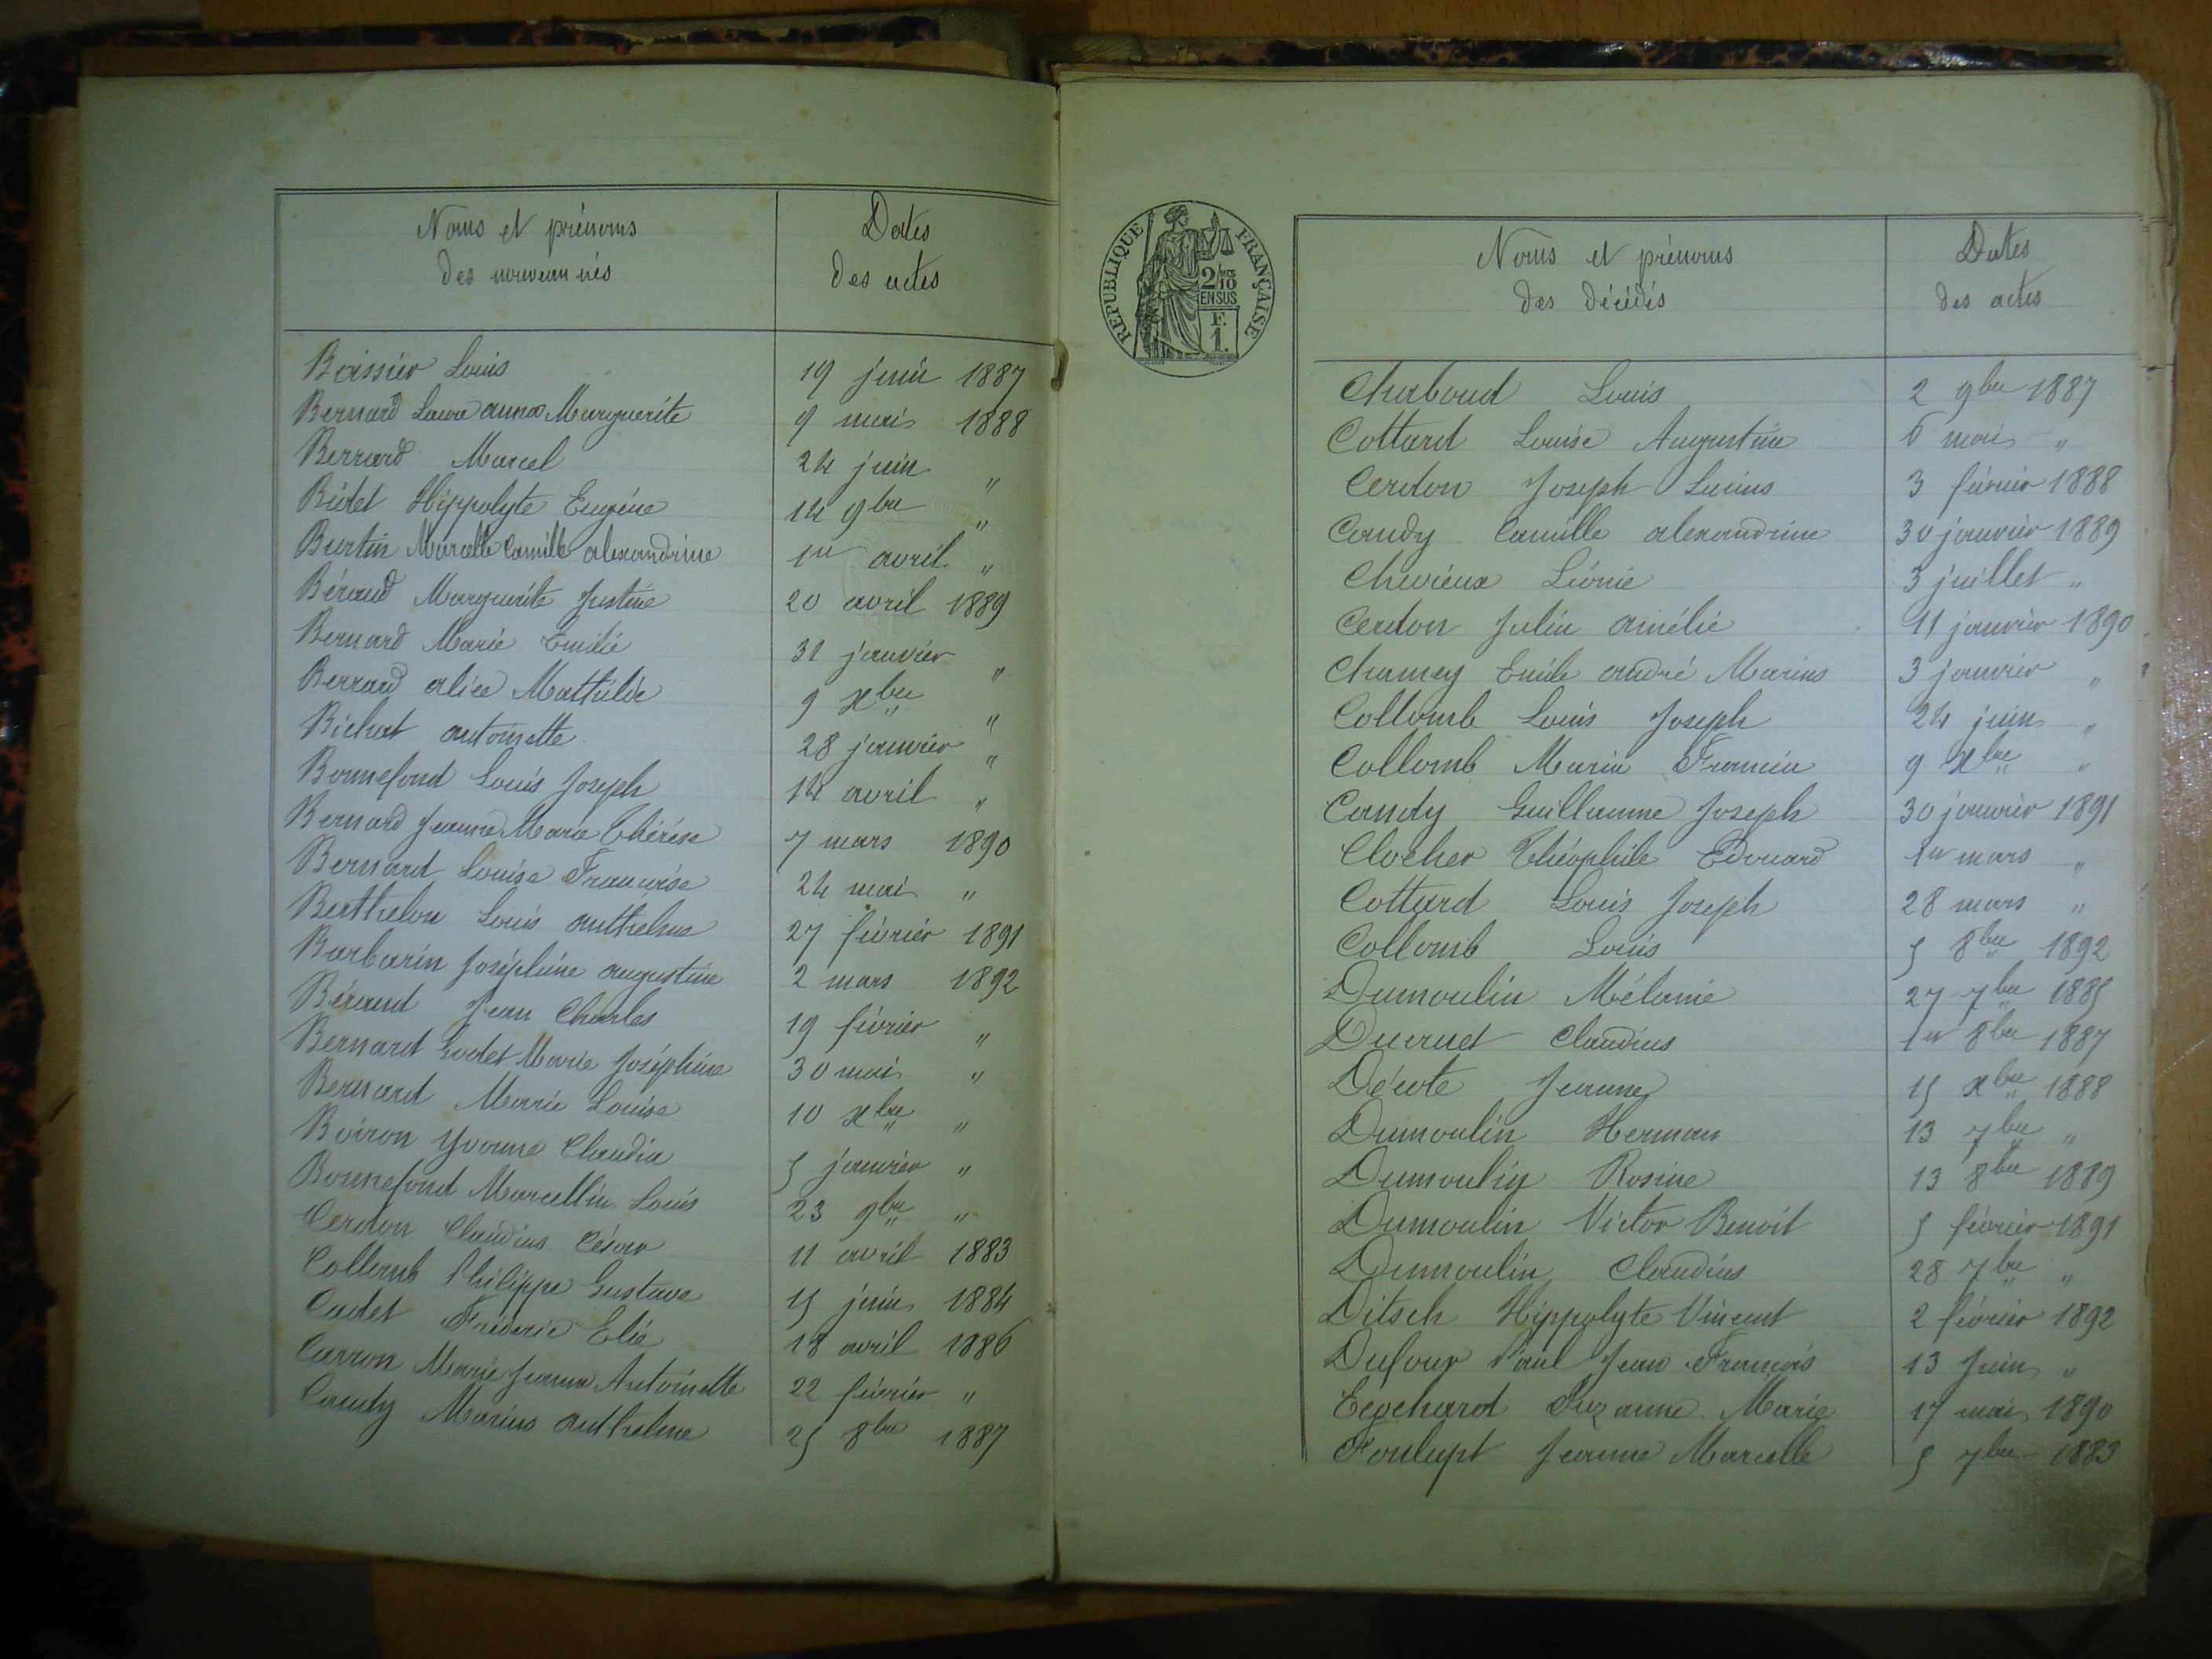 Noms et prénoms
des nouveau nés
Dates
des actes
Boissier Louis 19 juin 1887
Bernard Laura anna Marguerite 9 mai 1888
Berrard Marcel 24 juin "
Bidet Hippolyte Eugène 14 9bre "
Burtin Marcelle Camille alexandrine 1er avril "
Béraud Marguerite Justine 20 avril 1889
Bernard Marie Emilie 31 janvier "
Berrard alice Mathilde 9 xbre "
Bichat antoinette 28 janvier "
Bonnefond Louis Joseph 14 avril "
Bernard Jeanne Marie Thérèse 7 mars 1890
Bernard Louise Françoise 24 mai "
Berthelon Louis anthelme 27 février 1891
Barbarin Joséphine augustine 2 mars 1892
Béraud Jean Charles 19 février "
Bernard Godet Marie Joséphine 30 mai "
Bernard Marie Louise 10 xbre "
Boiron Yvonne Claudia 5 janvier "
Bonnefond Marcellin Louis 23 9bre "
Cerdon Claudius César 11 avril 1883
Collomb Philippe Gustave 15 juin 1884
Cadet Fréderic Elie 18 avril 1886
Carron Marie Jeanne Antoinette 22 février "
Candy Marius anthelme 25 8bre 1887
REPUBLIQUE FRANÇAISE
2/10 MES
EN SUS
F.
1.
Noms et prénoms
des décédés
Dates
des actes
Chaboud Louis 2 9bre 1887
Cottard Louise Augustine 6 mai "
Cerdon Joseph Lucius 3 février 1888
Candy Camille alexandrine 30 janvier 1889
Chevieux Léonie 3 juillet "
Cerdon Julie amélie 11 janvier 1890
Chamey Emile andré Marius 3 janvier "
Collomb Louis Joseph 24 juin "
Collomb Maria Francia 9 xbre "
Candy Guillaume Joseph 30 janvier 1891
Clocher Théophile Edouard 1er mars "
Cottard Louis Joseph 28 mars "
Collomb Louis 5 8bre 1892
Dumoulin Mélanie 27 7bre 1885
Ducruet Claudius 1er 8bre 1887
Décote Jeanne 15 xbre 1888
Dumoulin Herman 13 7bre "
Dumoulin Rosine 13 8bre 1889
Dumoulin Victor Benoit 5 février 1891
Dumoulin Claudius 28 7bre "
Ditsch Hippolyte Vincent 2 février 1892
Dufour Paul Jean François 13 Juin "
Suzanne Marie 17 mai 1890
Foulupt Jeanne Marcelle 5 7bre 1883